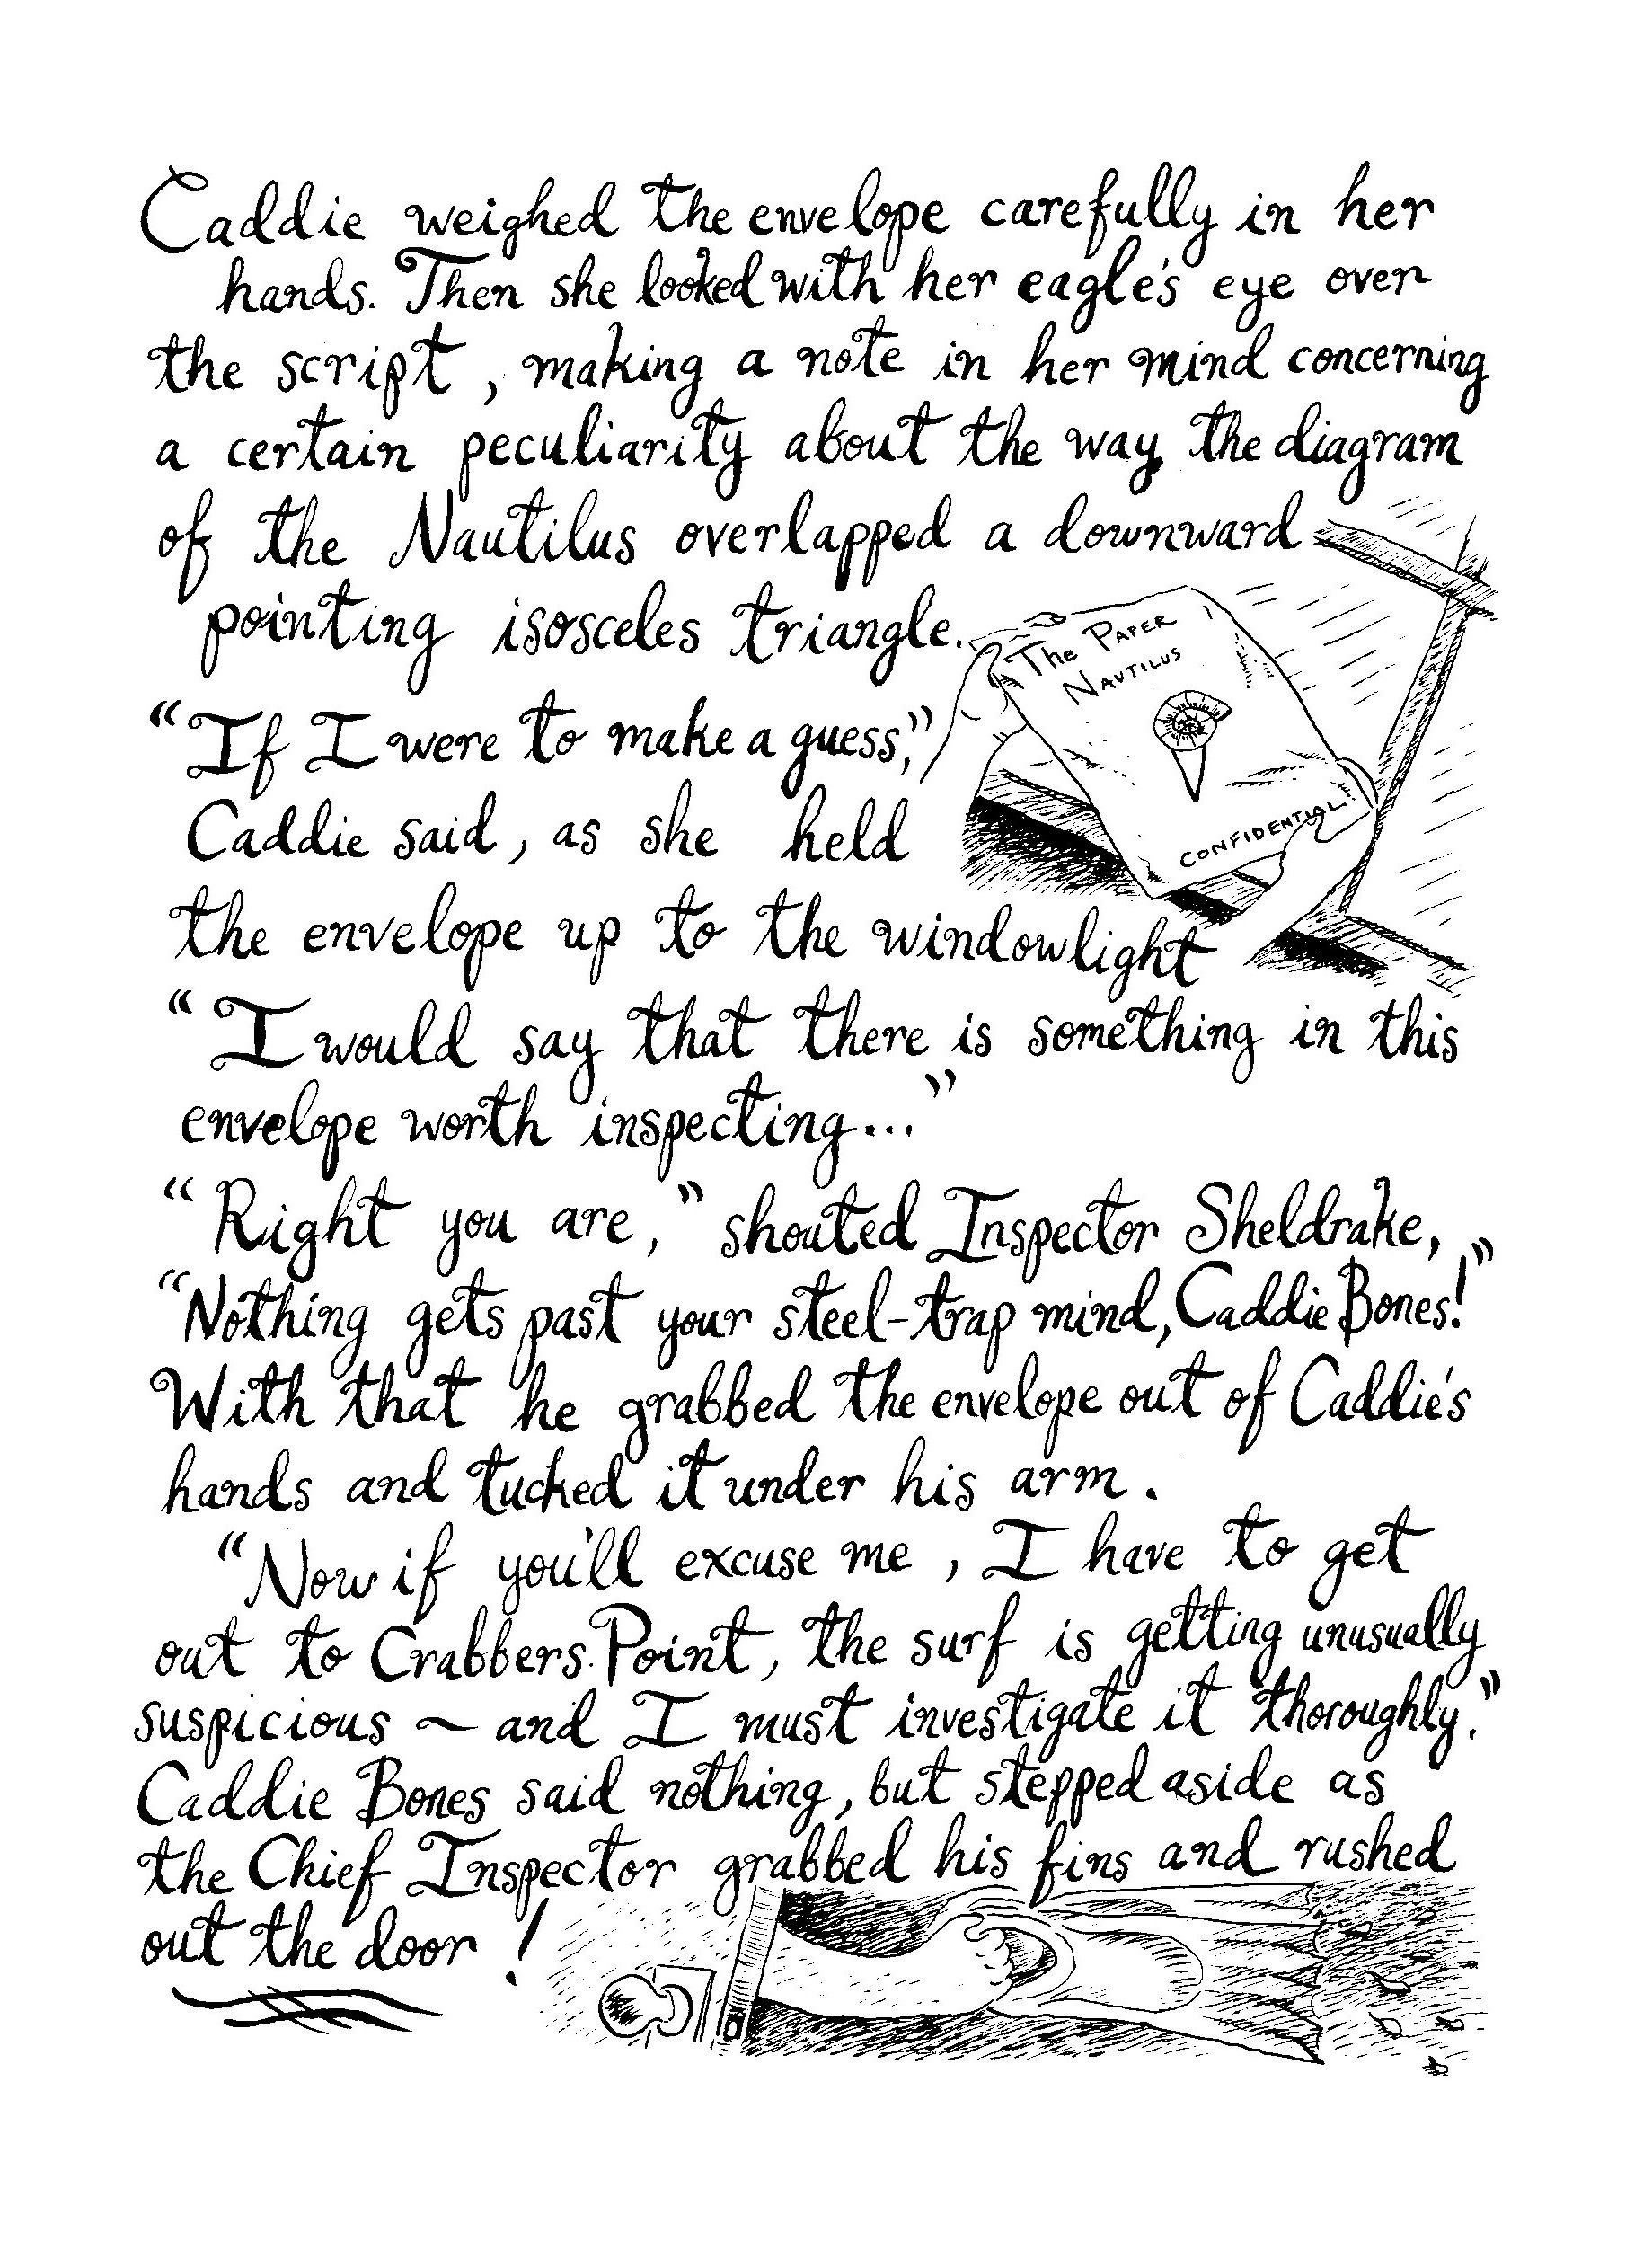 Caddie weighed the envelope carefully in her
hands. Then she looked with her eagle's eye over
the script, making a note in her mind concerning
a certain peculiarity about the way the diagram
of the Nautilus overlapped a downward
pointing isosceles triangle.
The PAPER
NAUTILUS
CONFIDENTIAL
"If I were to make a guess,"
Caddie said, as she held
the envelope up to the windowlight
"I would say that there is something in this
envelope worth inspecting..."
"Right you are," shouted Inspector Sheldrake,
"Nothing gets past your steel-trap mind, Caddie Bones!"
With that he grabbed the envelope out of Caddie's
hands and tucked it under his arm.
"Now if you'll excuse me, I have to get
out to Crabbers Point, the surf is getting unusually
suspicious ~ and I must investigate it thoroughly."
Caddie Bones said nothing, but stepped aside as
the Chief Inspector grabbed his fins and rushed
out the door!